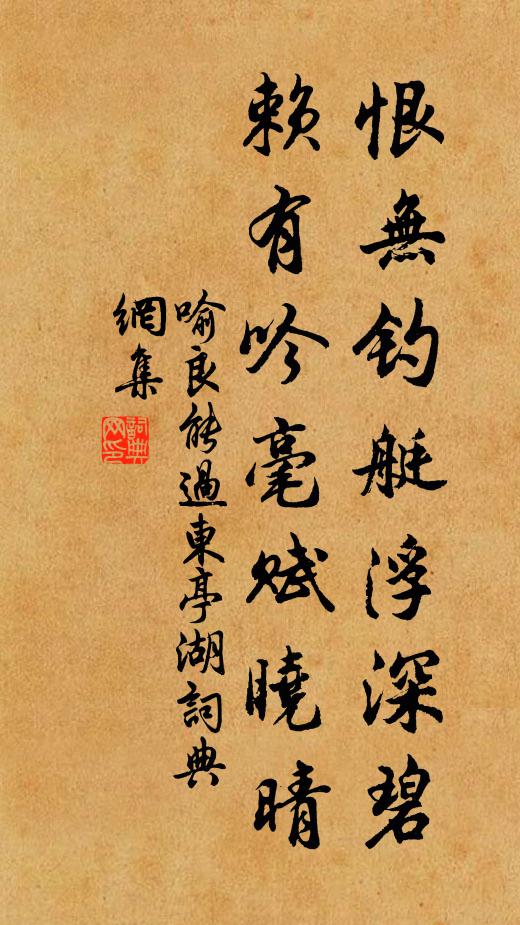 恨無釣艇浮深碧
賴有吟毫賦曉晴
喻良能過東亭湖詞典
網集
詞典
网印